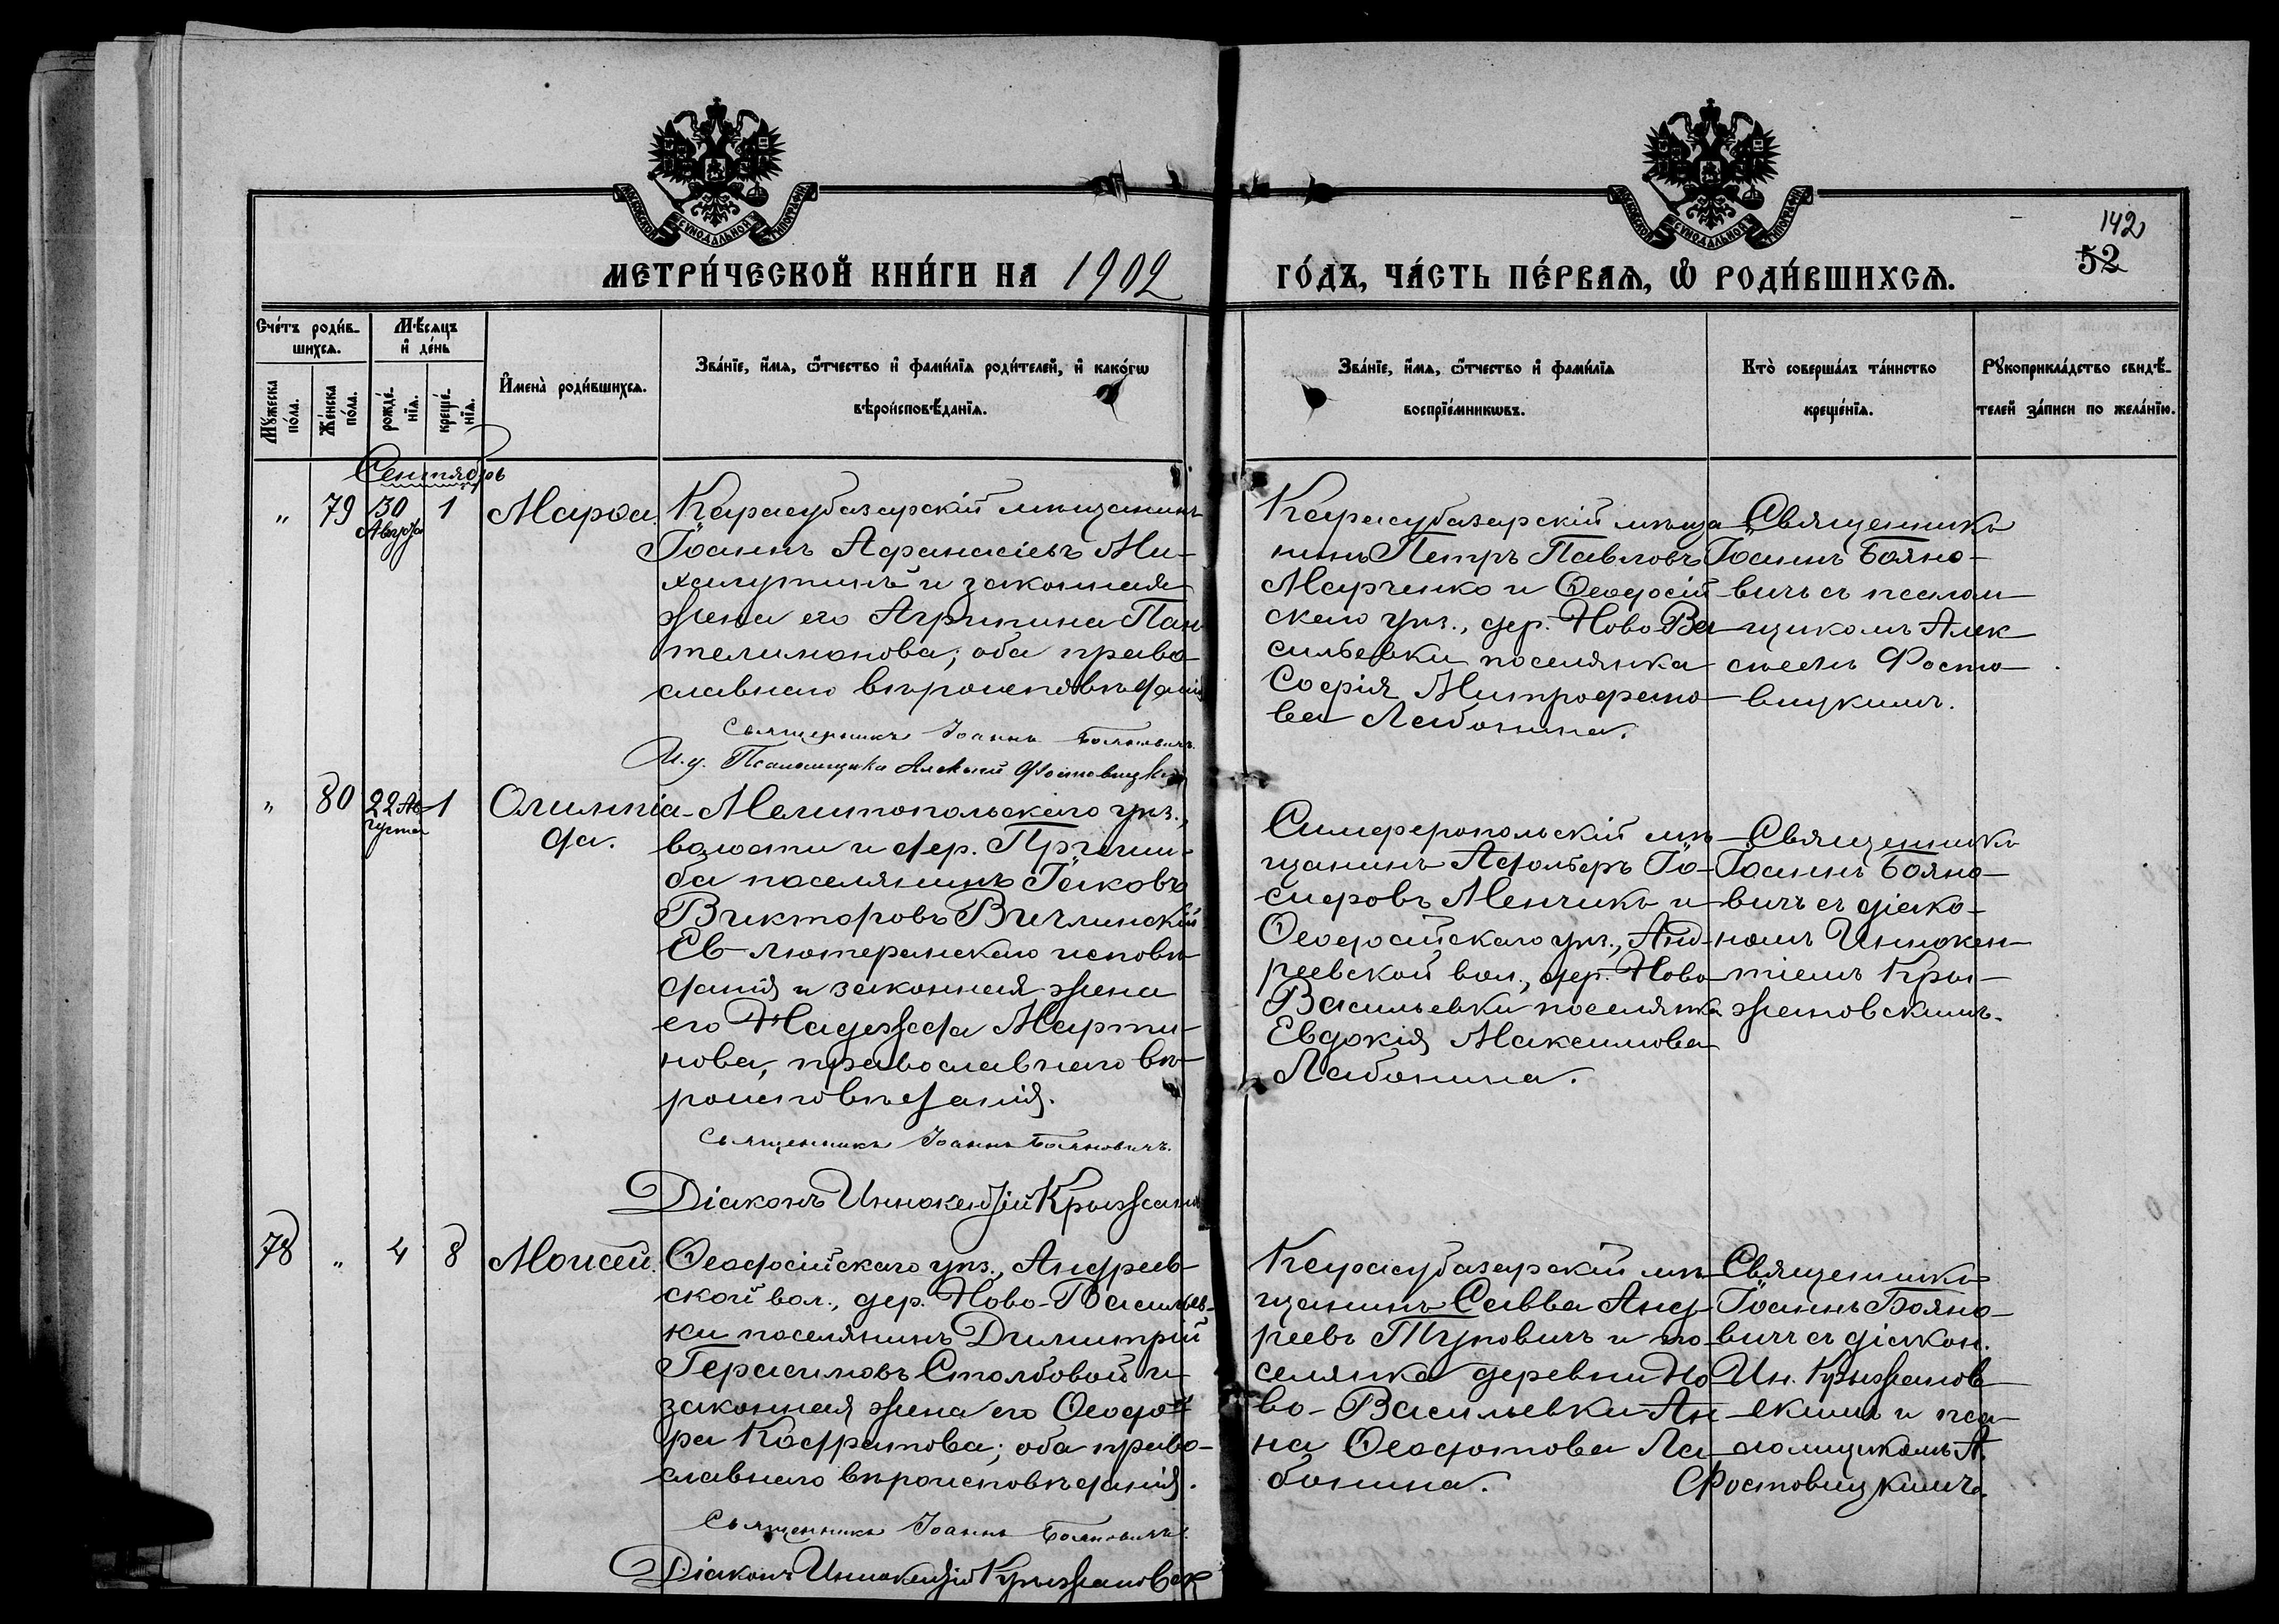 МОСКОВСКОЙ СѴНОДАЛЬНОЙ ТИПОГРАФІИ
МОСКОВСКОЙ СѴНОДАЛЬНОЙ ТИПОГРАФІИ
142
52
МЕТРИ́ЧЕСКОЙ КНИ́ГИ НА 1902
ГО́ДЪ, ЧА́СТЬ ПЕ́РВАѦ, Ѡ РОДИ́ВШИХСѦ.
Сче́тъ роди́в-
шихсѧ.
Мѣ́сѧцъ
и де́нь
Мꙋ́жеска
по́ла.
Же́нска
по́ла.
рожде́-
нїѧ.
креще́-
нїѧ.
Имена̀ роди́вшихсѧ.
Зва́нїе, и́мѧ, ѻ́тчество и фами́лїѧ роди́телей, и како́гѡ
вѣроисповѣ́данїѧ.
Зва́нїе, и́мѧ, ѻ́тчество и фами́лїѧ
воспрїе́мникѡвъ.
Кто̀ соверша́лъ та́инство
креще́нїѧ.
Рꙋкоприкла́дство свидѣ́-
телей за́писи по жела́нїю.
Сентябрь
" 79 30 Августа 1 Марѳа.
Карасубазарскій мѣщанинъ
Іоаннъ Аѳанасіевъ Ми-
халутинъ и законная
жена его Агрипина Пан
телимонова; оба право-
славнаго вѣроисповѣданія
Священникъ Іоаннъ Бояновичъ.
И. д. Псаломщика Алексѣй Фостовицкій
Карасубазарскій мѣща
нинъ Петръ Павловъ
Марченко и Ѳеодосій
скаго уѣз., дер. Ново Ва
сильевки поселянка
Софія Митрофано
ва Лабонина.
Священникъ
Іоаннъ Бояно-
вичъ съ псалом
щикомъ Алек
сѣемъ Фосто-
вицкимъ.
" 80 22 Августа 1 Олимпіа-
да.
Мелитопольскаго уѣз.,
волости и дер. Пришиба
ба поселянинъ Іаковъ
Викторовъ Вичлинскій
Ев-лютеранскаго исповѣ
данія и законная жена
его Надежда Марти-
нова, православнаго вѣ-
роисповѣданія.
Священникъ Іоаннъ Бояновичъ.
Діаконъ Иннокентій Крыжанов
Симферопольскій мѣ-
щанинъ Адольфъ Іо-
сифовъ Менчикъ и
Ѳеодосійскаго уѣз., Анд-
реевской вол., дер. Ново
Васильевки поселянка
Евдокія Максимова
Лабонина.
Священникъ
Іоаннъ Бояно-
вичъ съ діако-
номъ Иннокен-
тіемъ Кры-
жановскимъ.
78 " 4 8 Моисей.
Ѳеодосійскаго уѣз., Андреев-
ской вол., дер. Ново-Васильев-
ки поселянинъ Димитрій
Герасимовъ Столбовой и
законная жена его Ѳеодо-
ра Кодратова; оба право-
славнаго вѣроисповѣданія.
Священникъ Іоаннъ Бояновичъ.
Діаконъ Иннокентій Крыжановск
Карасубазарскій мѣ-
щанинъ Савва Анд-
реевъ Туповичъ и по-
селянка деревни Но
во-Васильевки Ан
на Ѳеодотова Ла
бонина.
Священникъ
Іоаннъ Бояно-
вичъ съ діакон.
Ин. Крыжанов
скимъ и пса-
ломщикомъ А.
Фостовицкимъ.